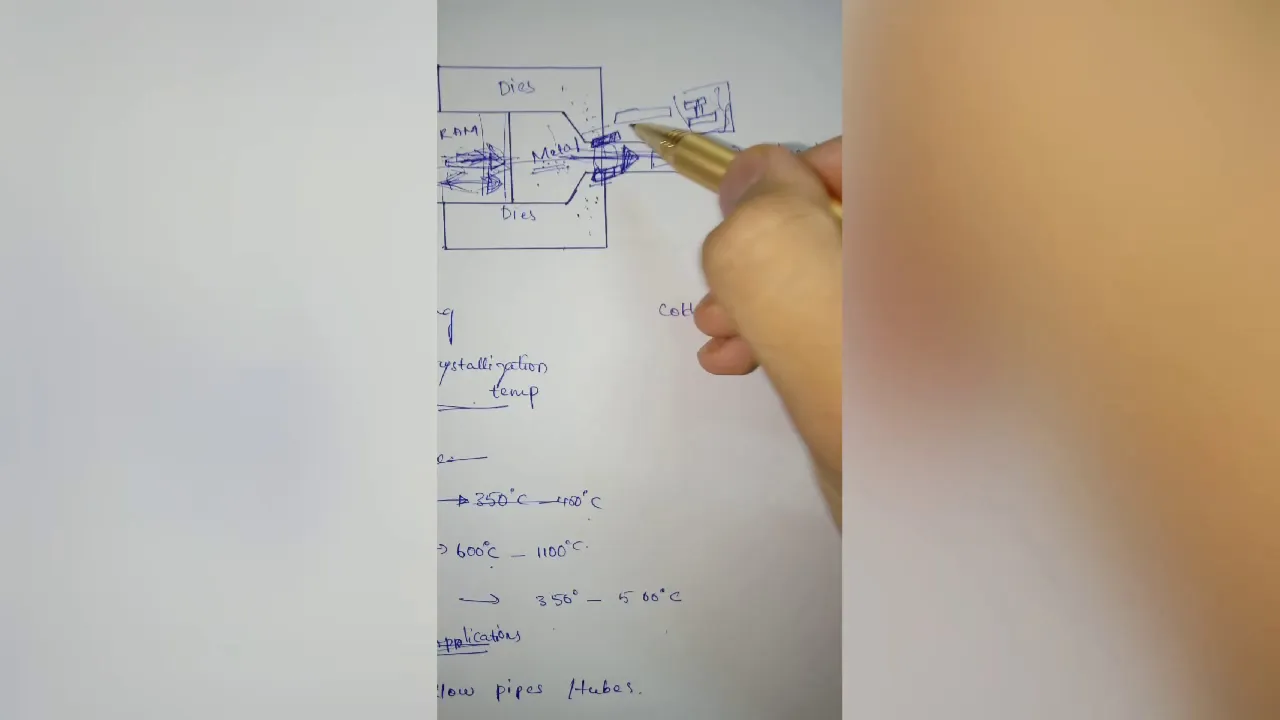 Dies
RAM
Metal
Dies
ystallization
temp
350°C – 400°C
600°C – 1100°C
350° – 500°C
applications
low pipes /tubes.